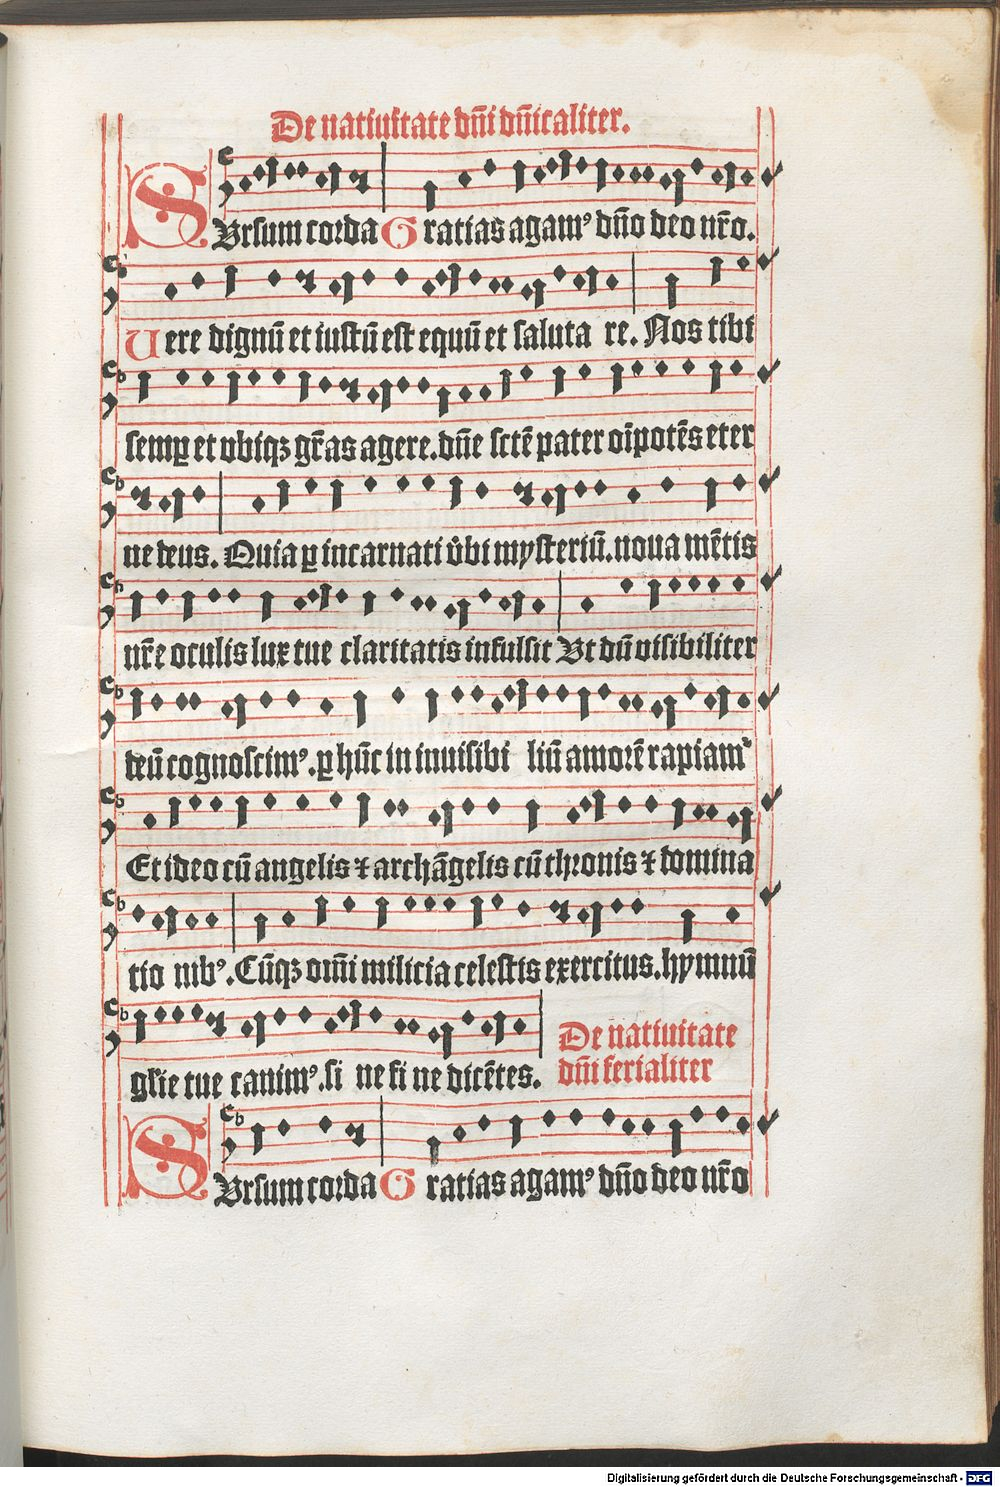 De natiuitate dn̄i dn̄icaliter.
SUrsum corda Gratias agamꝰ dn̄o deo nr̄o.
Uere dignū et iustū est equū et saluta re. Nos tibi
semꝑ et vbiqꝫ gr̄as agere. dn̄e sctē pater oīpotēs eter
ne deus. Quia ꝑ incarnati v̇bi mysteriū. noua mētis
nr̄e oculis lux tue claritatis infulsit Ut dū visibiliter
deū cognoscimꝰ. ꝑ hūc in inuisibi liū amorē rapiamꝰ
Et ideo cū angelis ⁊ archāgelis cū thronis ⁊ domina
tio nibꝰ. Cūqꝫ om̄i milicia celestis exercitus. hymnū
gl̄ie tue canimꝰ. si ne fi ne dicētes.
De natiuitate
dn̄i ferialiter
SUrsum corda Gratias agamꝰ dn̄o deo nr̄o
Digitalisierung gefördert durch die Deutsche Forschungsgemeinschaft - DFG